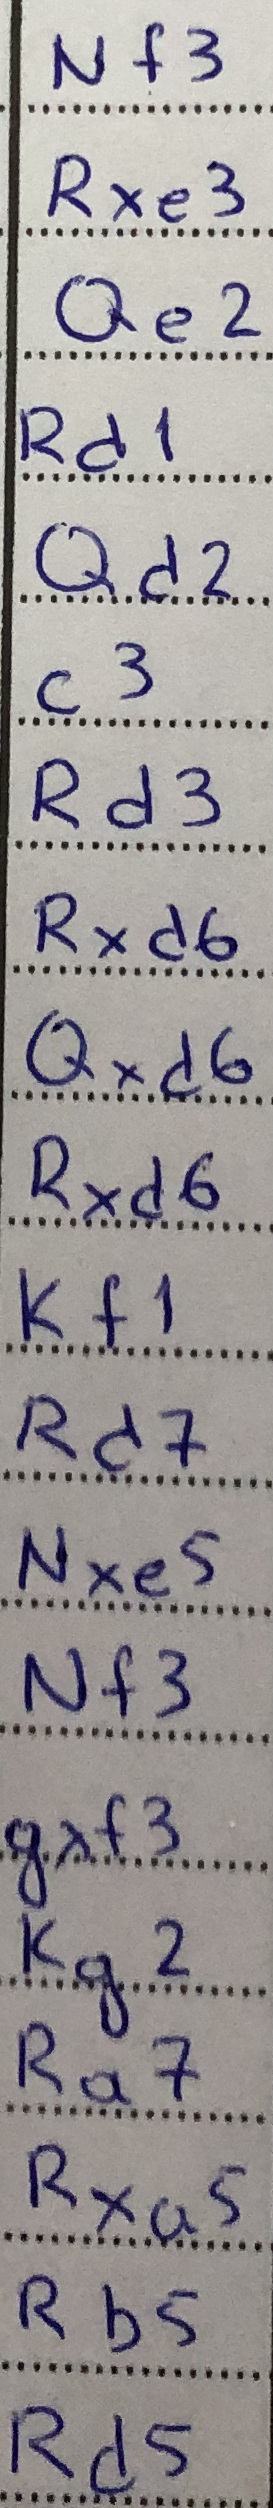 Nf3
Rxe3
Qe2
Rd1
Qd2
c3
Rd3
Rxd6
Qxd6
Rxd6
Kf1
Rd7
Nxe5
Nf3
gxf3
Kg2
Ra7
Rxa5
Rb5
Rd5